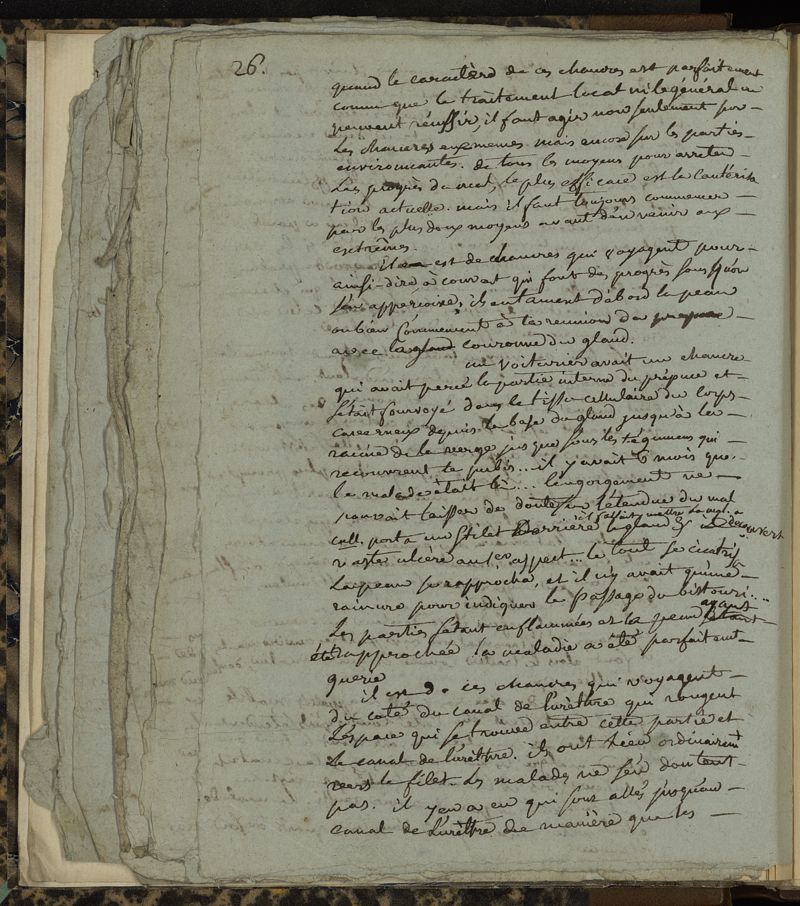 26.
quand le caractère de ces chancres est parfaitement
connu que le traitement local ni le général ne
peuvent réussir, il faut agir non seulement sur
les chancres eux memes mais encore sur les parties
environnantes. de tous les moyens pour arreter
les progrès du mal, le plus efficace est la cautérisa
tion actuelle. mais il faut toujours commencer
par les plus doux moyens avant d'en venir aux
extrêmes.
Il est de chancres qui voyagent pour
ainsi-dire à couvert qui font des progrès sans qu'on
s'en apperçoive, ils entament d'abord la peau
ou bien commencent à la reunion du prepuce
avec la gland couronne du gland.
un voiturier avait un chancre
qui avait percé la partie interne du prépuce et
s'était fourvoyé dans le tissu cellulaire du corps
caverneux depuis la base du gland jusqu'à la
racine de la verge jusque sous les tégumens qui
recouvrent le pubis... il y avait 6 mois que
le malade était là... l'engorgement ne
pouvait laisser de doute sur l'étendue du mal
cull. porta un stilet derrière le gland & il fallait mettre le mal à decouvert
vaste ulcère au 1er aspect... le tout se cicatrisa
la peau se rapprocha, et il n'y avait qu'une
rainure pour indiquer le passage du bistouri...
Les parties s'étant enflammées et la peau s'étant ayant
été rapprochée la maladie a été parfaitemt
guerie
il est d. ces chancres qui voyagent
du coté du canal de l'urèthre qui rongent
l'espace qui se trouve entre cette partie et
le canal de l'urèthre. ils ont lieu ordinairemt
vers le filet. les malades ne s'en doutent
pas. il y en a eu qui sont allés jusqu'au
canal de l'urèthre de manière que les